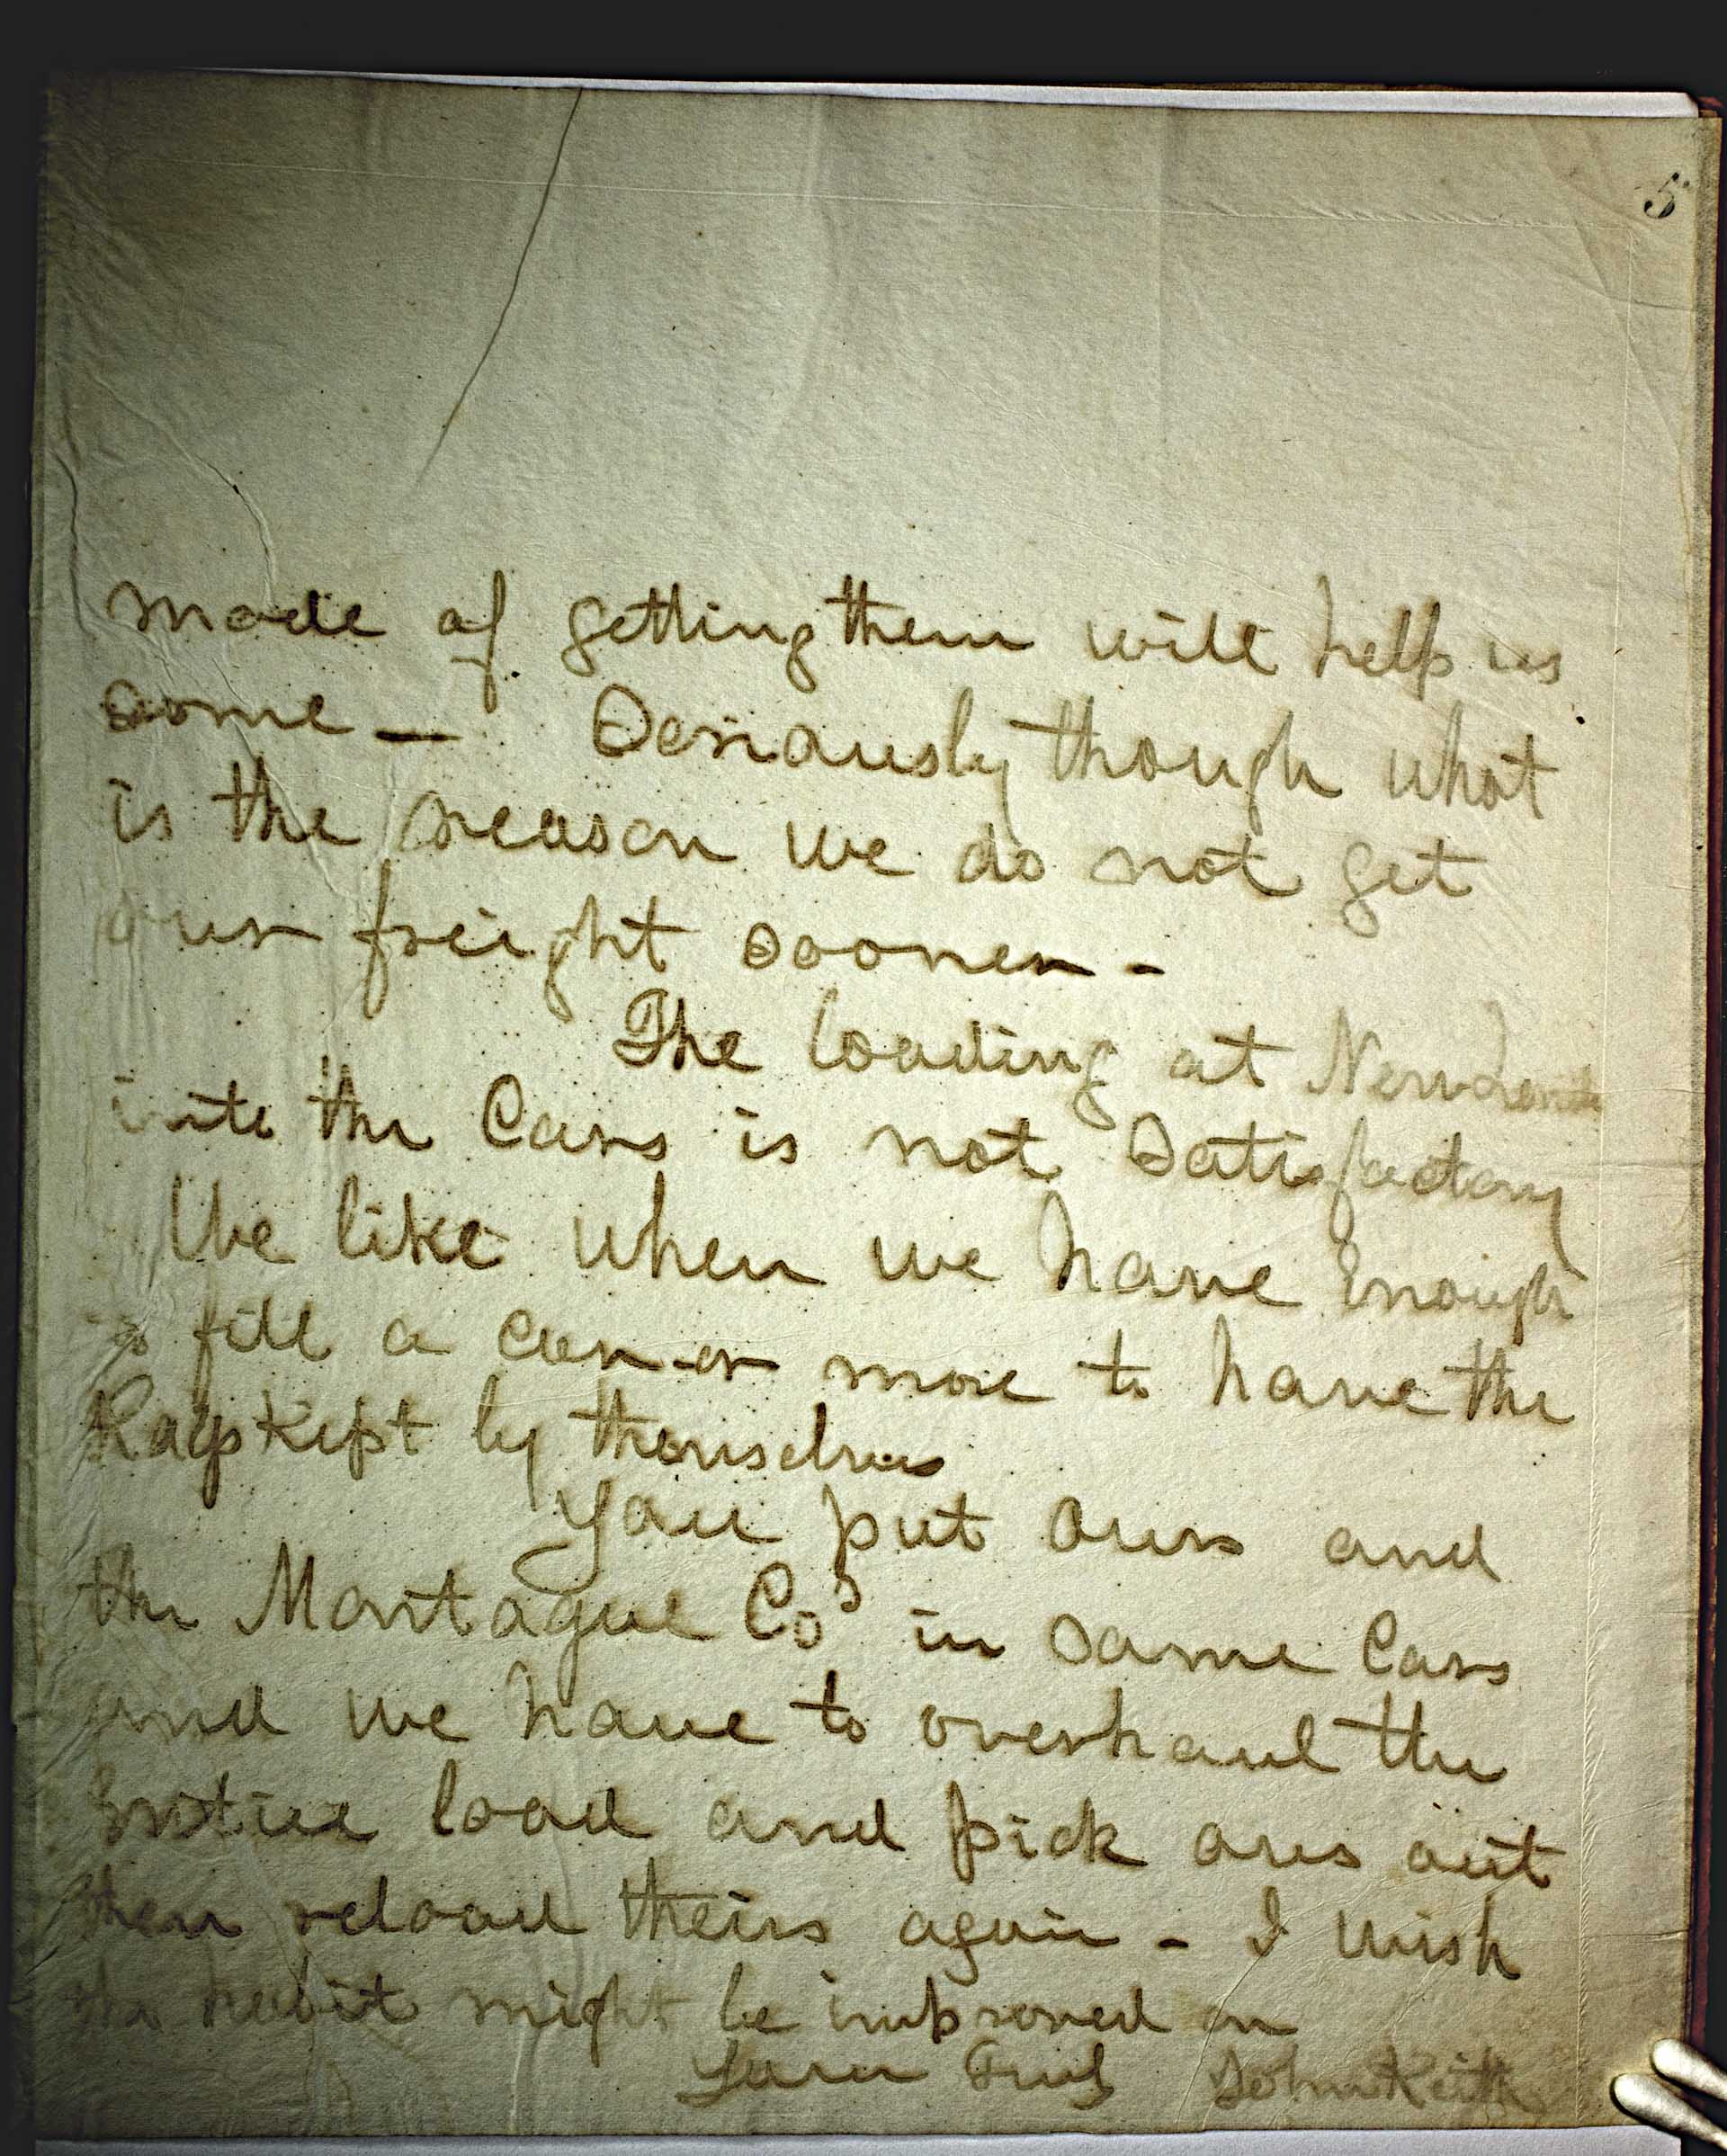 5
mode of getting them will help us
some — Seriously though what
is the reason we do not get
our freight sooner -
The loading at New London
into the Cars is not Satisfactory
We like when we have Enough
to fill a Car or more to have the
Rags Kept by themselves
You put Ours and
the Montague Cos in same Cars
and we have to overhaul the
Entire load and pick ours out
then reload theirs again - I wish
the habit might be improved on
Yours Truly John Keith